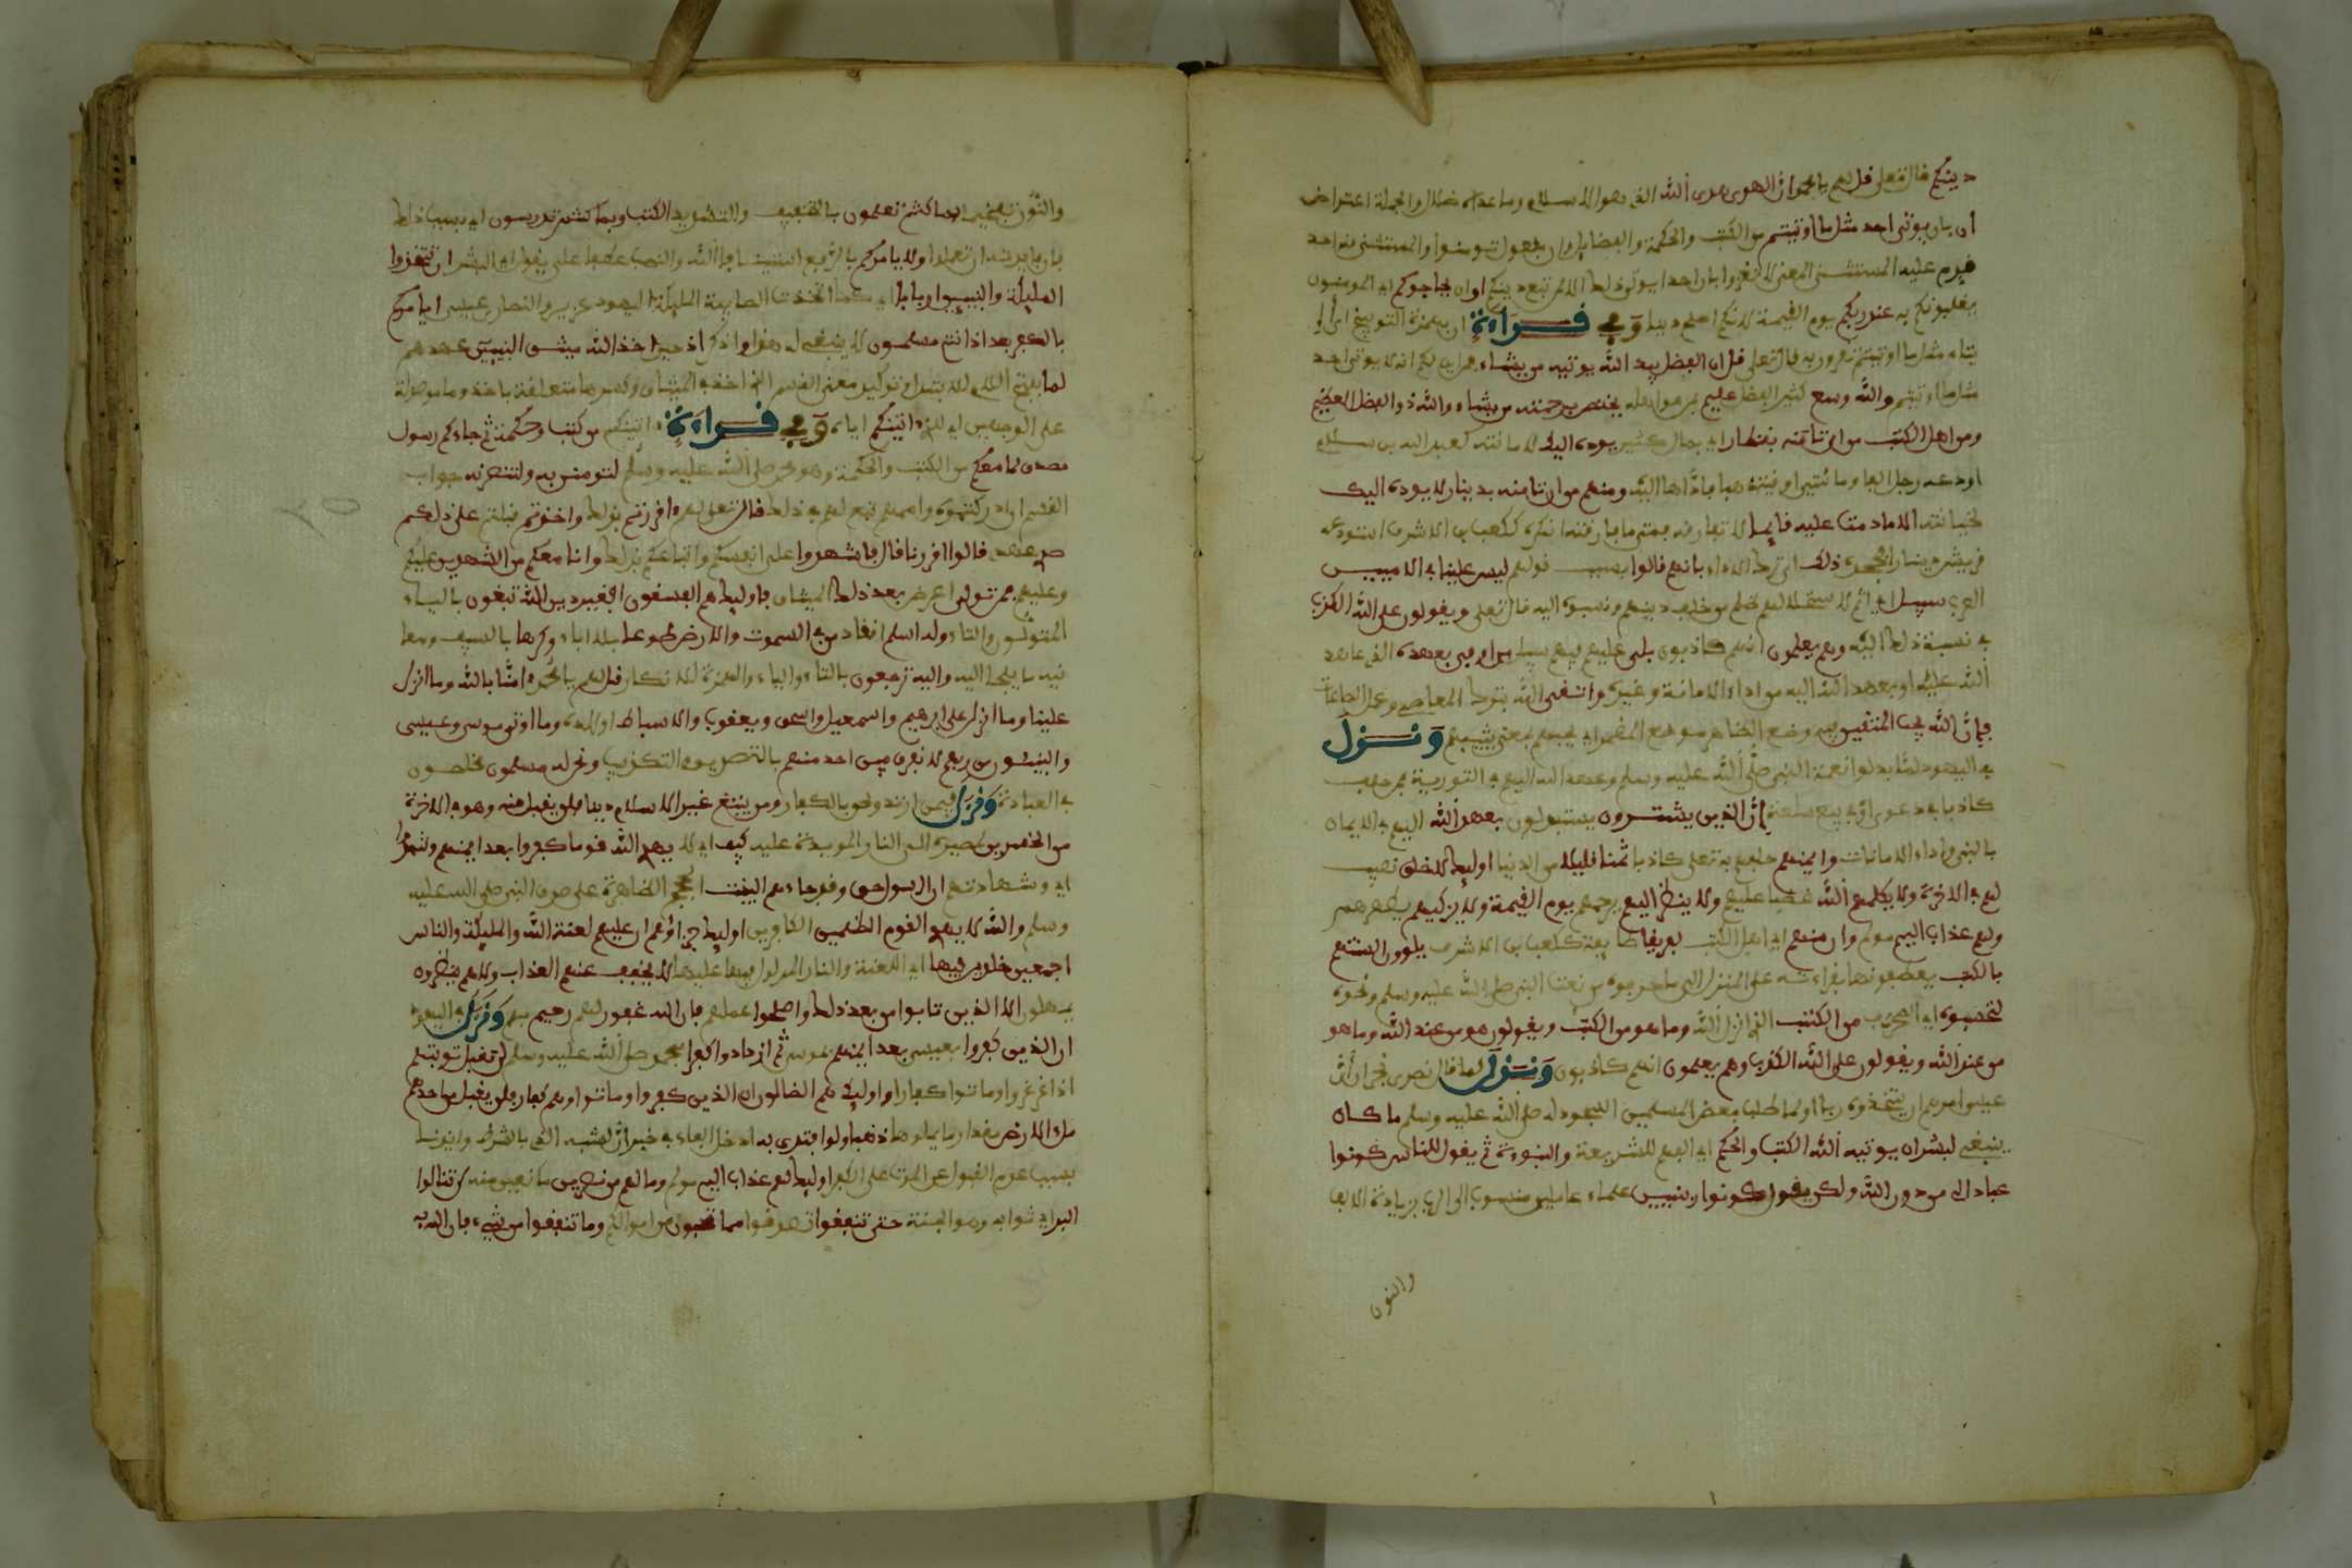 دينكم قال تعلى قل لهم يا محمد ان الهدى هدى الله الذى هو الاسلام وما عداه ضلال والجملة اعتراض
ان بان يوتى احد مثل ما اوتيتم من الكتب والحكمة والفضايل وان مفعول تومنوا والمستثنى منه احد
قدم عليه المستثنى المعنى لا تقروا بان احدا يوتى ذلك الا لمن تبع دينكم او ان يحاجوكم اى المومنون
يغلبونكم به عند ربكم يوم القيمة لانكم اصح دينا وفي قراءة ان بهمزة التوبيخ اى
ايتاء مثل ما اوتيتم تقرون به قال تعلى قل ان الفضل بيد الله يوتيه من يشاء فمن اين لكم انه لا يوتى احد
مثل ما اوتيتم والله وسع كثير الفضل عليم بمن هو اهله يختص برحمته من يشاء والله ذو الفضل العظيم
ومن اهل الكتب من ان تامنه بقنطار اى بمال كثير يوده اليك لامانته كعبد الله بن سلام
اودعه رجل الفا ومائتين اوقية ذهبا فاداها اليه ومنهم من ان تامنه بدينار لا يوده اليك
لخيانته الا ما دمت عليه قايما لا تفارقه فمتى ما فارقته انكره ككعب بن الاشرف استودعه
قرشي دينارا فجحده ذلك اى ترك الاداء بانهم قالوا بسبب قولهم ليس علينا في الاميين
العرب سبيل اى اثم لاستحلالهم ظلم من خالف دينهم ونسبوه اليه قال تعلى ويقولون على الله الكذب
في نسبة ذلك اليه وهم يعلمون انهم كاذبون بلى عليهم فيهم سبيل من اوفى بعهده الذى عاهد
الله عليه او بعهد الله اليه من اداء الامانة وغيره واتقى الله بترك المعاصي وعمل الطاعات
فان الله يحب المتقين فيه وضع الظاهر موضع المضمر اى يحبهم بمعنى يثيبهم ونزل
في اليهود لما بدلوا نعت النبي صلى الله عليه وسلم وعهد الله اليهم في التورية فيمن حلف
كاذبا في دعوى او في بيع سلعة ان الذين يشترون يستبدلون بعهد الله اليهم في الايمان
بالنبي واداء الامانات وايمنهم حلفهم به تعلى كاذبا ثمنا قليلا من الدنيا اوليك لا خلق نصيب
لهم في الاخرة ولا يكلمهم الله غضبا عليهم ولا ينظر اليهم يرحمهم يوم القيمة ولا يزكيهم يطهرهم
ولهم عذاب اليم مولم وان منهم اى اهل الكتب لفريقا طايفة ككعب بن الاشرف يلوون السنتهم
بالكتب يعطفونها بقراءته على المنزل الى ما حرفوه من نعت النبي صلى الله عليه وسلم ونحوه
لتحسبوه اى المحرف من الكتب الذى انزل الله وما هو من الكتب ويقولون هو من عند الله وما هو
من عند الله ويقولون على الله الكذب وهم يعلمون انهم كاذبون ونزل لما قال نصرى نجران ان
عيسى امرهم ان يتخذوه ربا او لما طلب بعض المسلمين السجود له صلى الله عليه وسلم ما كان
ينبغي لبشر ان يوتيه الله الكتب والحكم اى الفهم للشريعة والنبوءة ثم يقول للناس كونوا
عبادا لى من دون الله ولكن يقول كونوا ربنيين علماء عاملين منسوب الى الرب بزيادة الالف
والنون
والنون تفخيما بما كنتم تعلمون بالتخفيف والتشديد الكتب وبما كنتم تدرسون اى بسبب ذلك
فان فايدته ان تعملوا ولا يامركم بالرفع استينافا اى الله والنصب عطفا على يقول اى البشر ان تتخذوا
المليكة والنبيين اربابا اى كما اتخذت الصابية المليكة اليهود عزير والنصارى عيسى ايامركم
بالكفر بعد اذ انتم مسلمون لا ينبغى له هذا واذكر اذ حين اخذ الله ميثق النبيين عهدهم
لما بفتح اللام للابتداء وتوكيد معنى القسم الذى في اخذ الميثاق وكسرها متعلقة باخذ وما موصولة
على الوجهين اى للذى اتيتكم اياه وفي قراءة اتينكم من كتب وحكمة ثم جاءكم رسول
مصدق لما معكم من الكتب والحكمة وهو محمد صلى الله عليه وسلم لتومنن به ولتنصرنه جواب
القسم ان ادركتموه واممهم تبع لهم في ذلك قال تعلى لهم اقررتم بذلك واخذتم قبلتم على ذلكم
اصرى عهدى قالوا اقررنا قال فاشهدوا على انفسكم واتباعكم بذلك وانا معكم من الشهدين عليكم
وعليهم فمن تولى اعرض بعد ذلك الميثاق فاوليك هم الفسقون افغير دين الله تبغون بالياء
المتولون والتاء وله اسلم انقاد من في السموت والارض طوعا بلا اباء وكرها بالسيف ومعا
ينة ما يلجئ اليه واليه ترجعون بالتاء والياء والهمزة للانكار قل لهم يا محمد امنا بالله وما انزل
علينا وما انزل على ابرهيم واسمعيل واسحق ويعقوب والاسباط اولاده وما اوتى موسى وعيسى
والنبيئون من ربهم لا نفرق بين احد منهم بالتصديق والتكذيب ونحن له مسلمون مخلصون
في العبادة ونزل فيمن ارتد ولحق بالكفار ومن يبتغ غير الاسلام دينا فلن يقبل منه وهو في الاخرة
من الخسرين لمصيره الى النار الموبدة عليه كيف اى لا يهدى الله قوما كفروا بعد ايمنهم وشهدوا
اى وشهادتهم ان الرسول حق وقد جاءهم البينت الحجج الظاهرة على صدق النبي صلى الله عليه
وسلم والله لا يهدى القوم الظلمين الكافرين اوليك جزاؤهم ان عليهم لعنة الله والمليكة والناس
اجمعين خلدين فيها اى اللعنة والنار المدلول بها عليها لا يخفف عنهم العذاب ولا هم ينظرون
يمهلون الا الذين تابوا من بعد ذلك واصلحوا عملهم فان الله غفور لهم رحيم بهم ونزل في اليهود
ان الذين كفروا بعيسى بعد ايمنهم بموسى ثم ازدادوا كفرا بمحمد صلى الله عليه وسلم لن تقبل توبتهم
اذا غرغروا وماتوا كفارا واوليك هم الضالون ان الذين كفروا وماتوا وهم كفار فلن يقبل من احدهم
ملء الارض مقدار ما يملوها ذهبا ولو افتدى به ادخل الفاء في خبر ان لشبه الذى بالشرط وايذانا
بسبب عدم القبول عن الموت على الكفر اوليك لهم عذاب اليم مولم وما لهم من نصرين مانعين منه لن تنالوا
البر اى ثوابه وهو الجنة حتى تنفقوا تصدقوا مما تحبون من اموالكم وما تنفقوا من شيء فان الله به